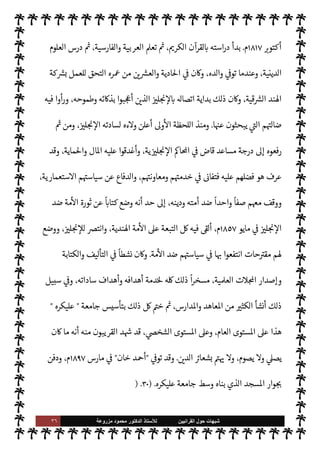 أكتوبر ١٨١٧م. بدأ دراسته بالقرآن الكريم، ثم تعلم العربية والفارسية، ثم درس العلوم
الدينية، وعندما توفي والده، وكان في الحادية والعشرين من عمره التحق للعمل بشركة
الهند الشرقية، وكان ذلك بداية اتصاله بالإنجليز الذين أعجبوا بذكائه وطموحه، ورأوا فيه
ضالتهم التي يبحثون عنها. ومنذ اللحظة الأولى أعلن ولاءه لسادته الإنجليز، ومن ثم
رفعوه إلى درجة مساعد قاض في المحاكم الإنجليزية، وأغدقوا عليه المال والحماية، وقد
عرف هو فضلهم عليه فتفانى في خدمتهم ومعاونتهم، والدفاع عن سياستهم الاستعمارية،
ووقف معهم صفاً واحداً ضد أمته ودينه، إلى حد أنه وضع كتاباً عن ثورة الأمة ضد
الإنجليز في مايو ١٨٥٧م، ألقى فيه كل التبعة على الأمة الهندية، وانتصر للإنجليز، ووضع
لهم مقترحات انتفعوا بها في سياستهم ضد الأمة. وكان نشطاً في التأليف والكتابة
وإصدار المجلات العلمية، مسخراً ذلك كله لخدمة أهدافه وأهداف ساداته، وفي سبيل
ذلك أنشأ الكثير من المعاهد والمدارس، ثم ختم كل ذلك بتأسيس جامعة " عليكره "
هذا على المستوى العام، وعلى المستوى الشخصي، قد شهد القريبون منه أنه ما كان
يصلي ولا يصوم، ولا يهتم بشعائر الدين. وقد توفي "أحمد خان" في مارس ١٨٩٧م، ودفن
بجوار المسجد الذي بناه وسط جامعة عليكره. (٣٠. (
٣٦ شبهات حول القرآنيين للأستاذ الدكتور محمود مزروعة